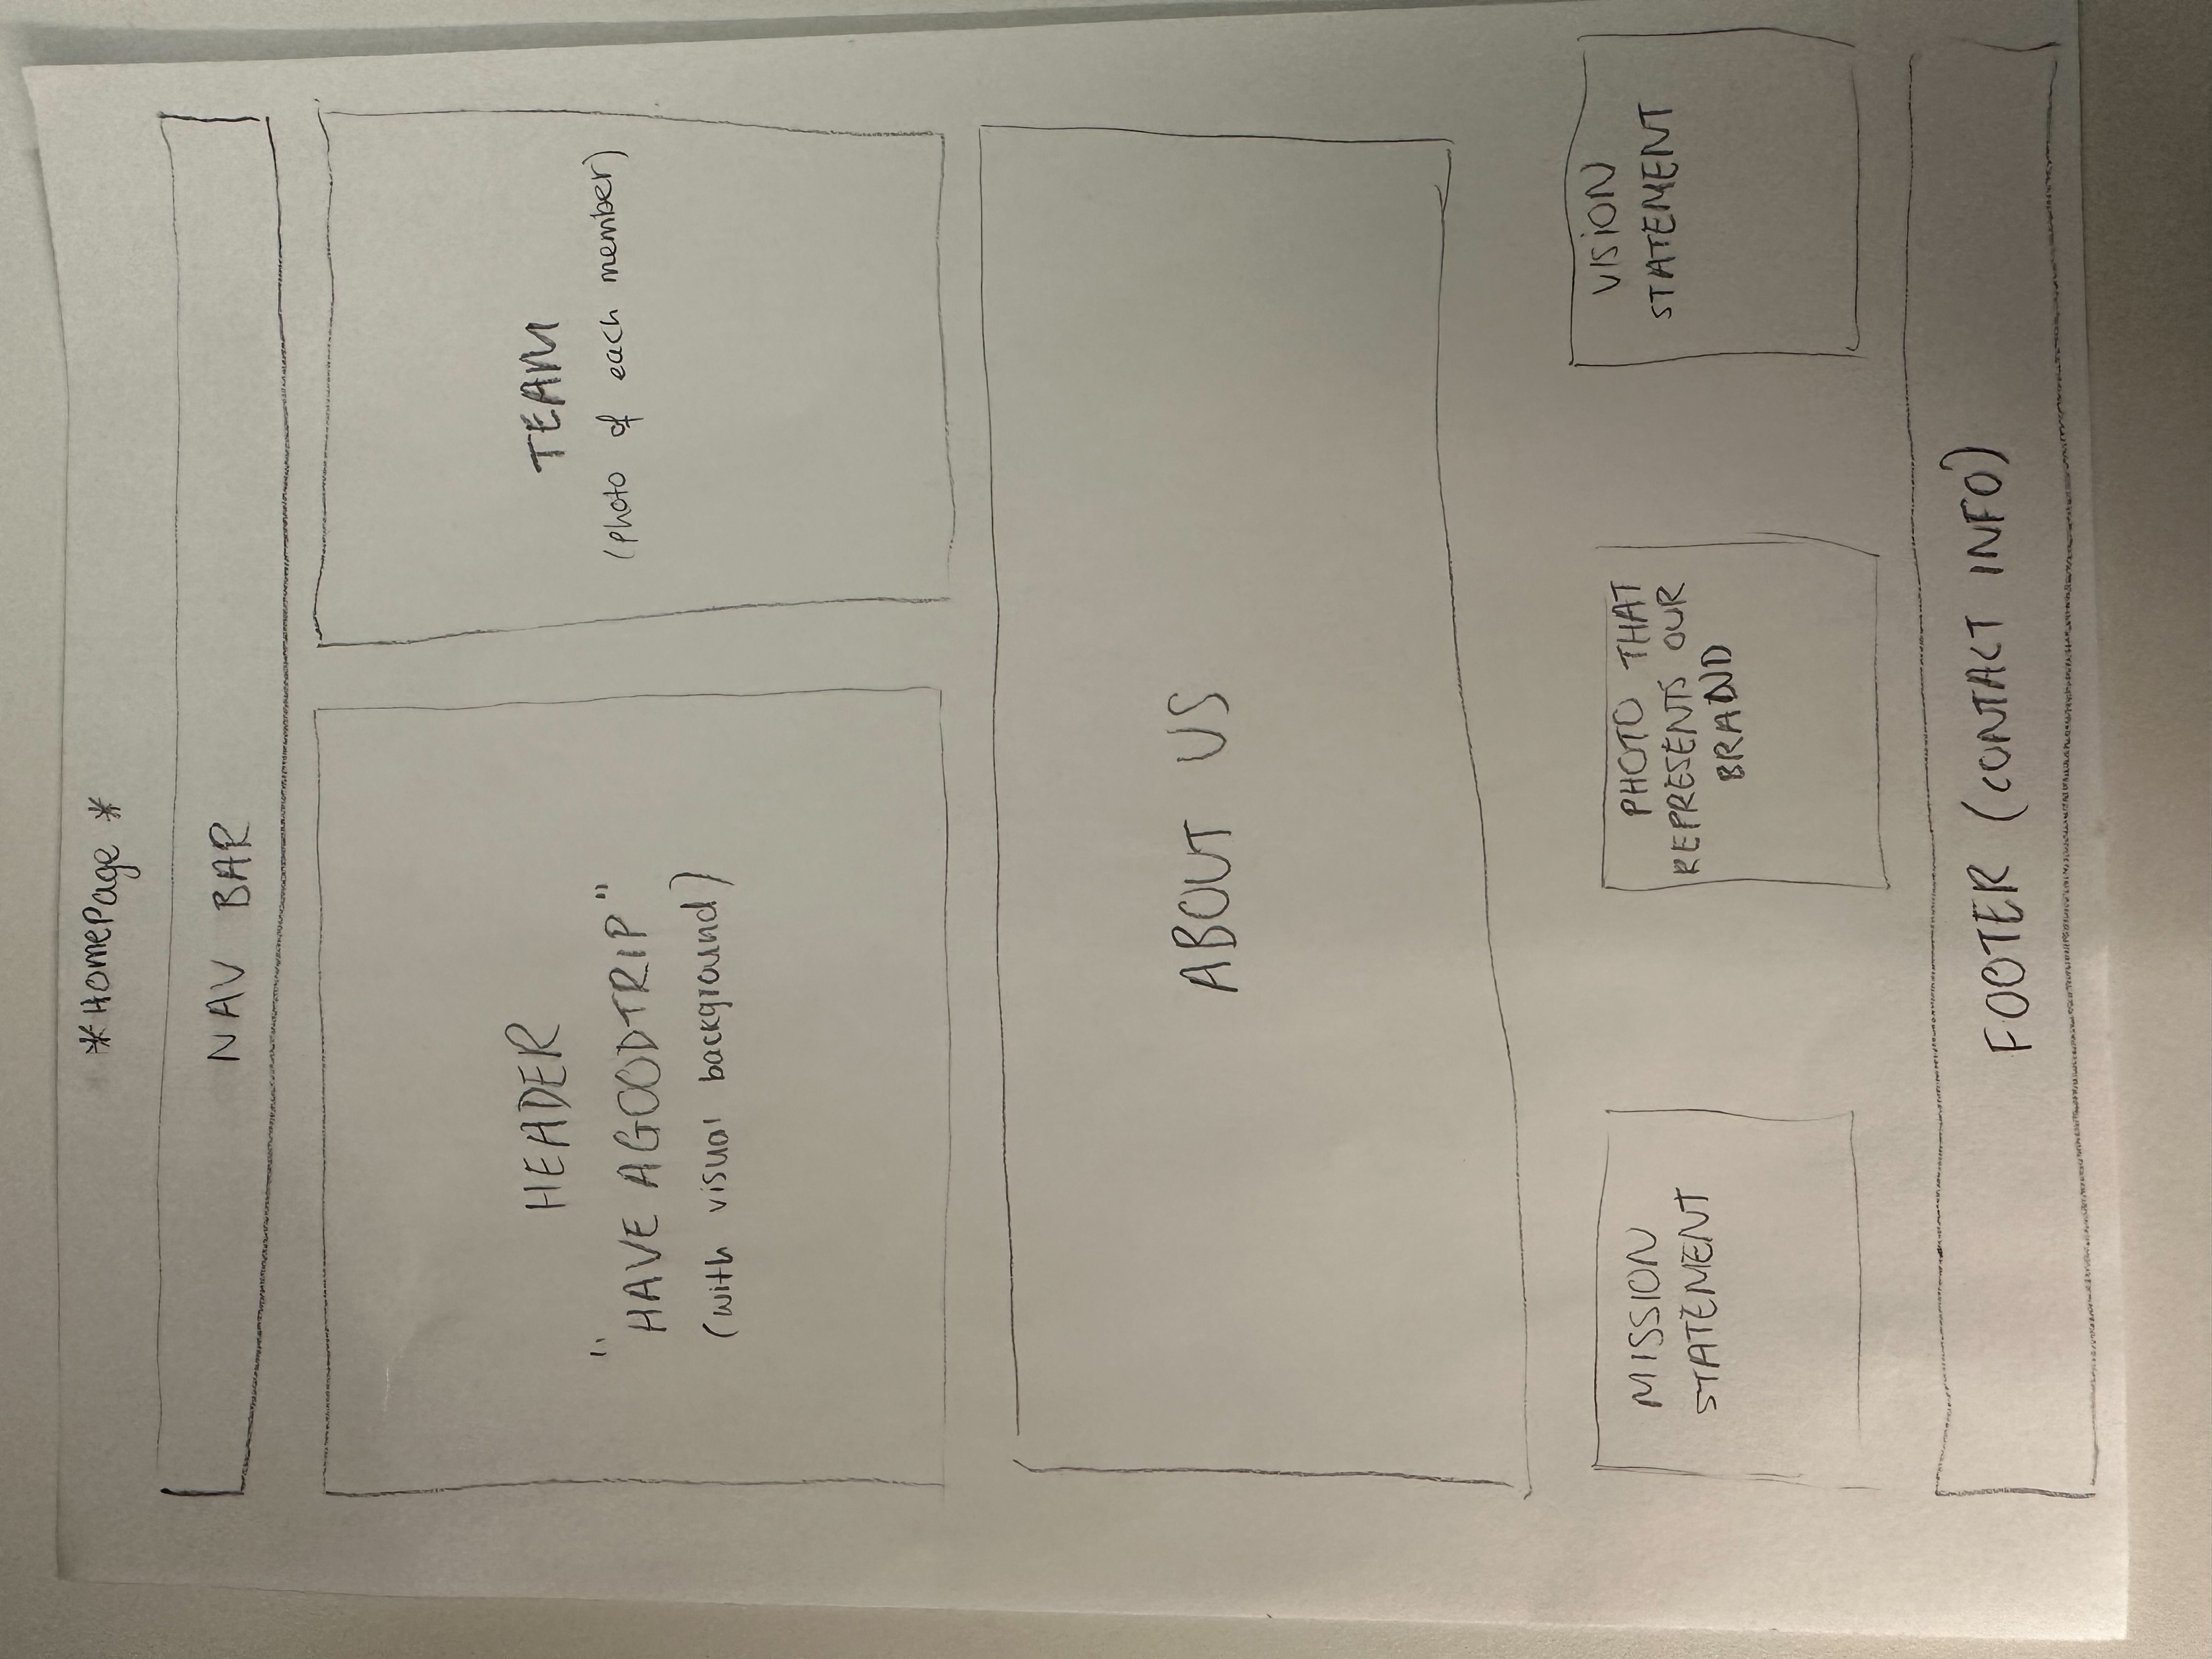 *HomePage*
NAV BAR
HEADER
"HAVE AGOODTRIP"
(with visual background)
TEAM
(photo of each member)
ABOUT US
MISSION
STATEMENT
PHOTO THAT
REPRESENTS OUR
BRAND
VISION
STATEMENT
FOOTER (CONTACT INFO)